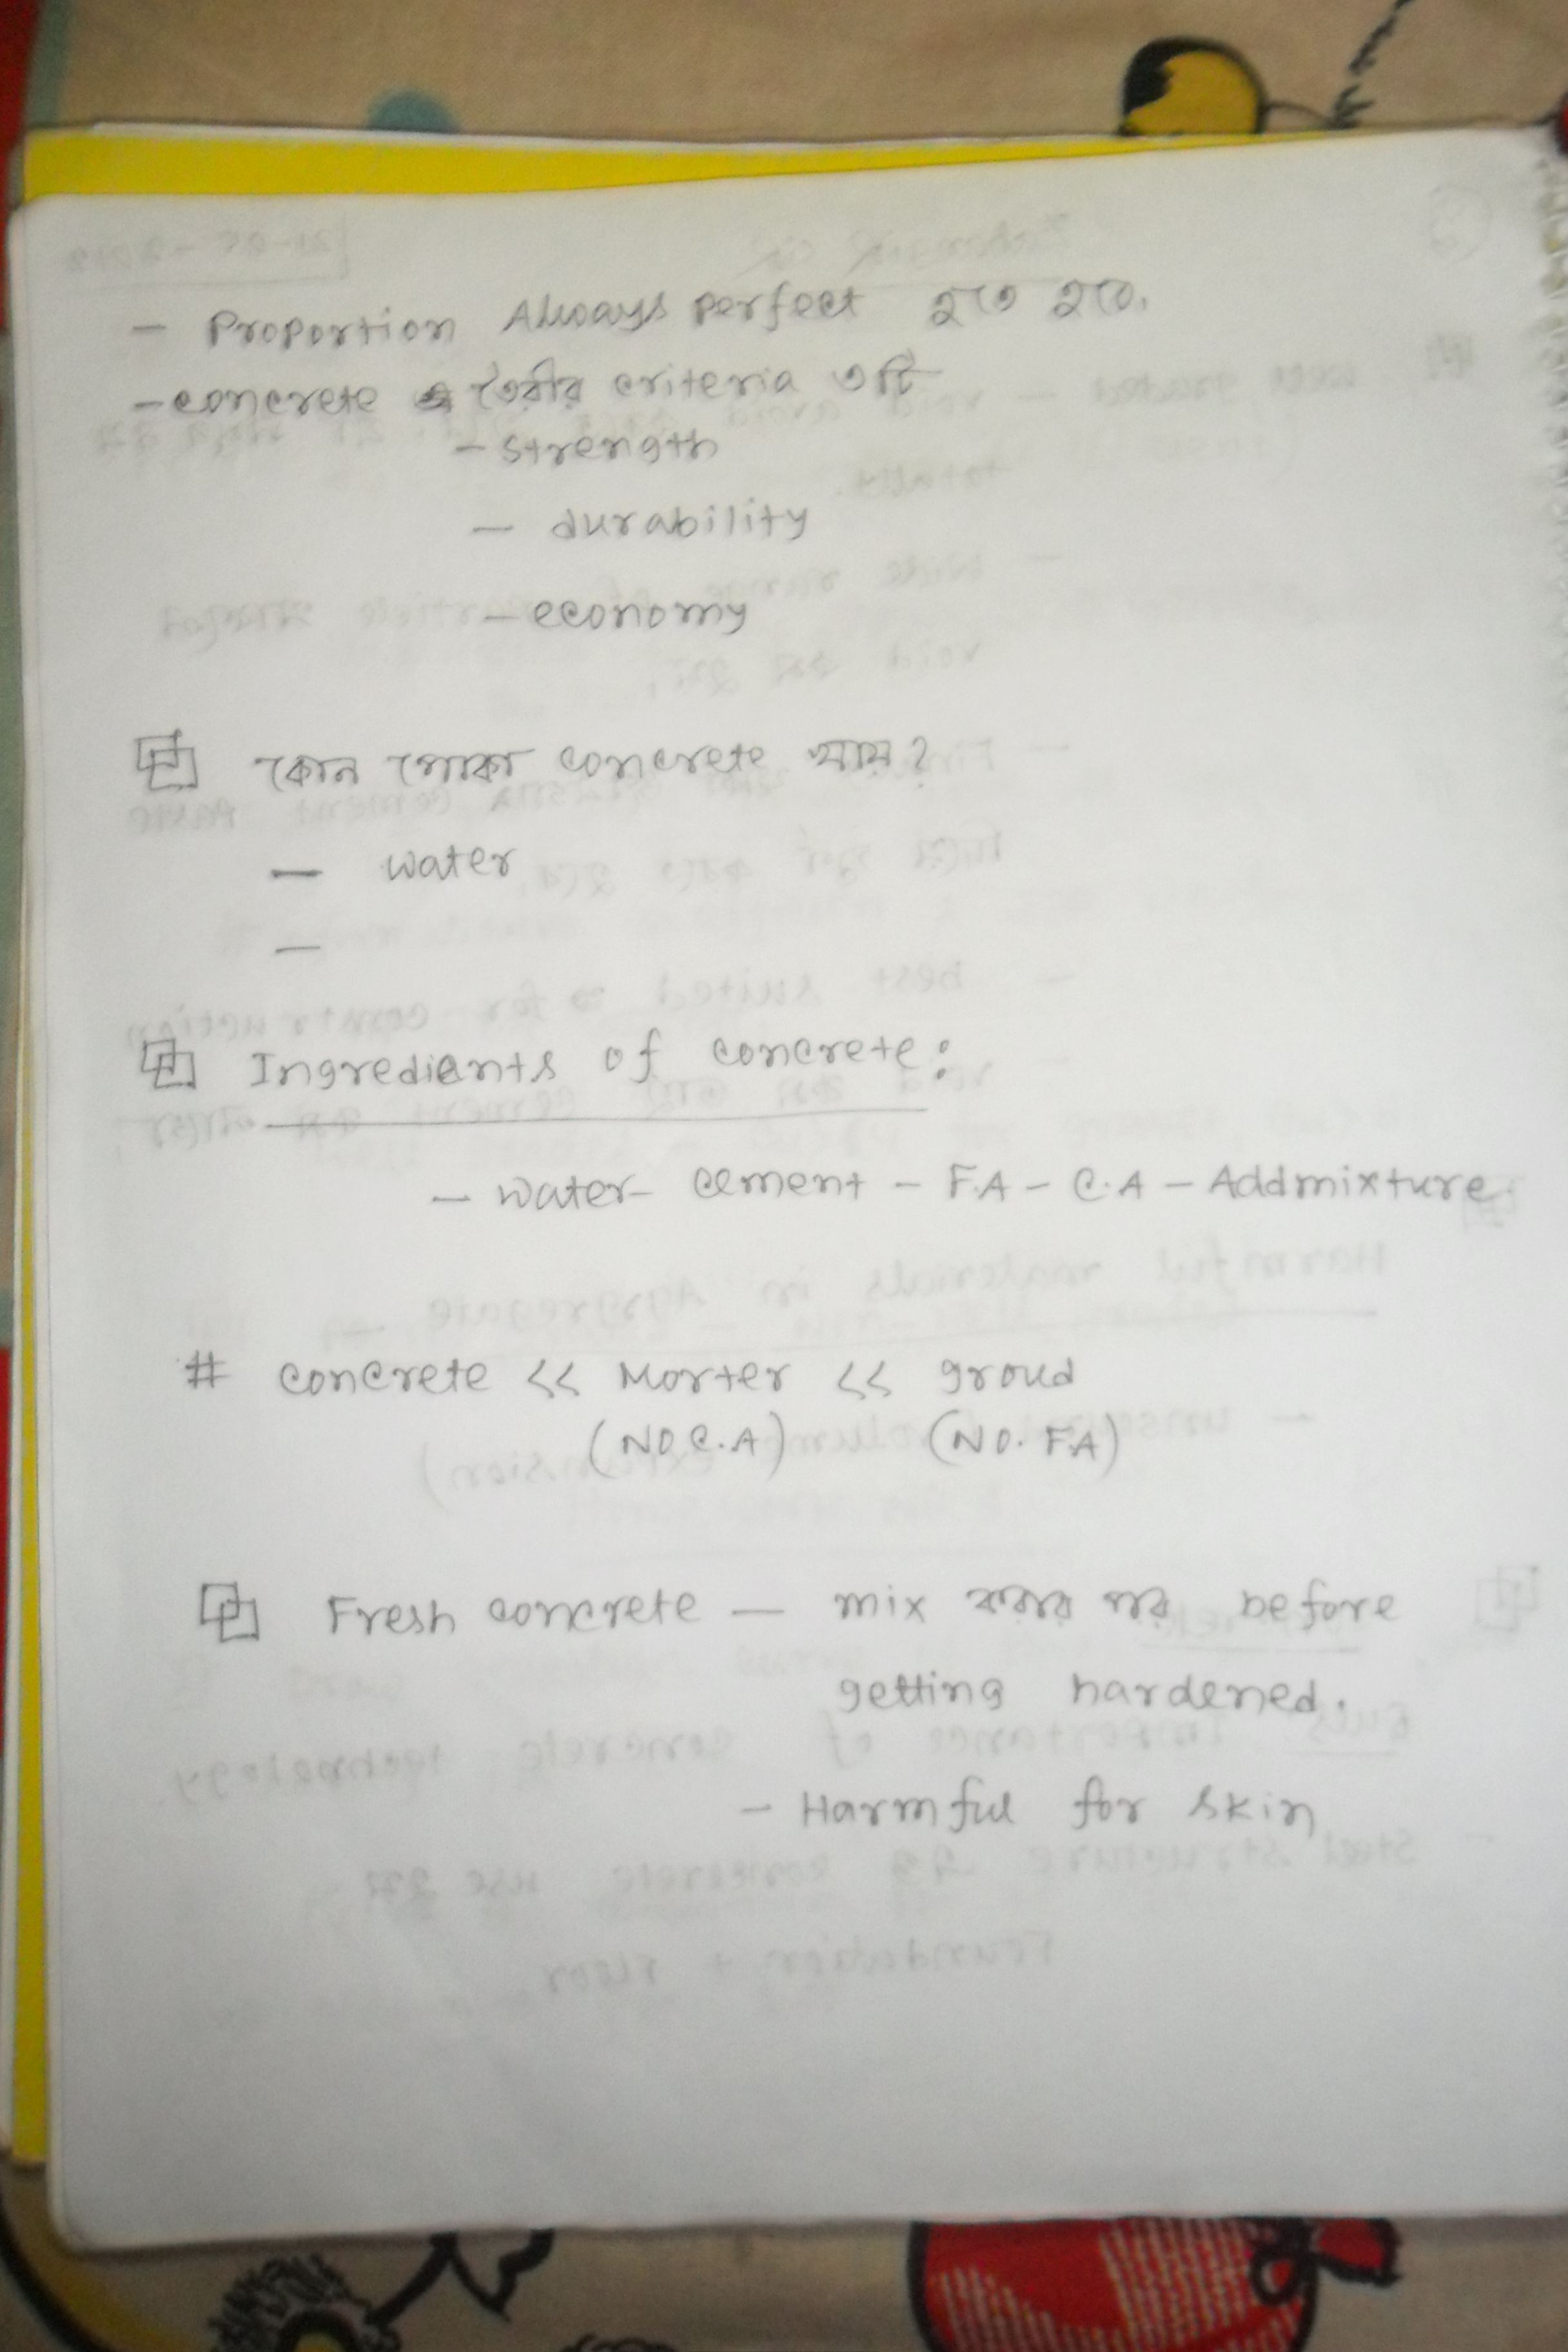 - Proportion Always perfect হতে হবে.
- concrete তৈরীর criteria ৩টি
- strength
- durability
- economy
কোন পোকা concrete খায়?
- water
-
Ingredients of concrete:
- water- cement - F.A - C.A - Addmixture.
# concrete << Morter << groud
(NO C.A) (NO. F.A)
Fresh concrete - mix করার পর before
getting hardened.
- Harmful for skin